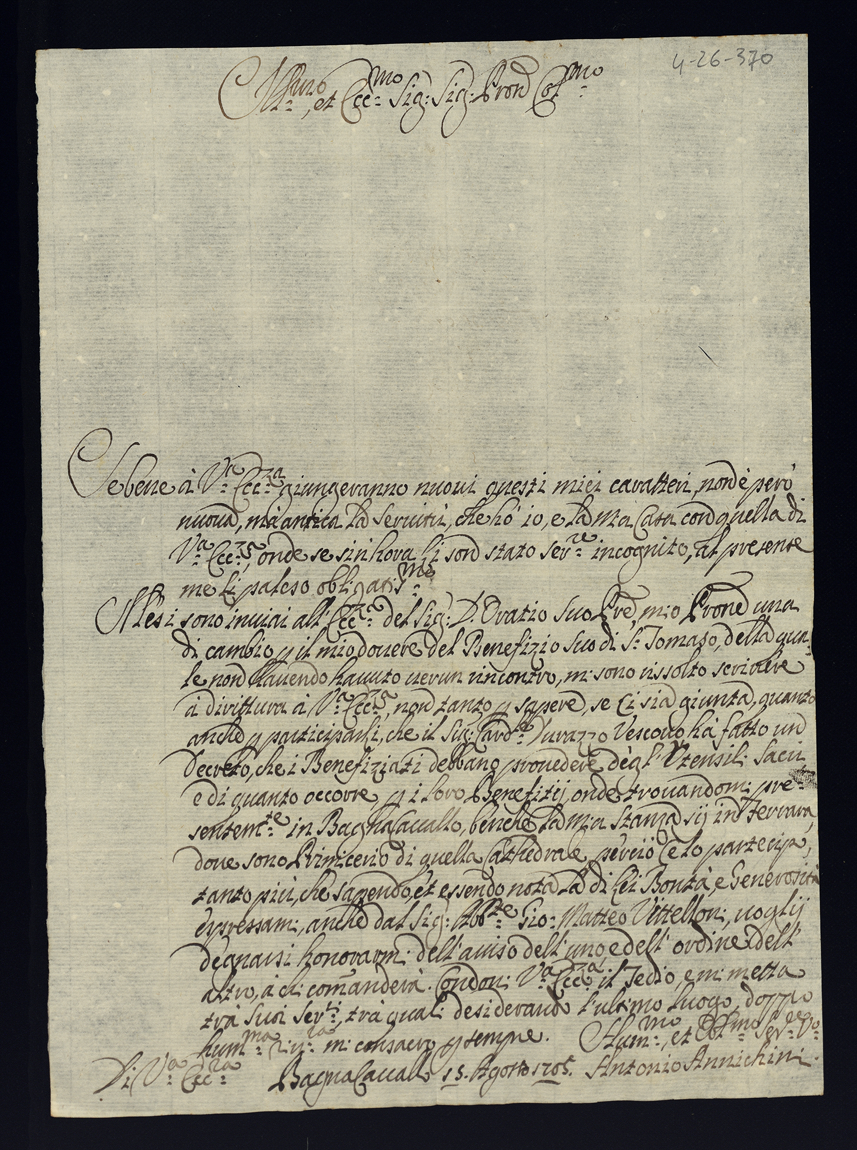 4-26-370
Ill.mo, et Ecc.mo Sig: Sig: Pron Col.mo
Sebene à V.a Ecc.za giungeranno nuovi questi miei caratteri, non è però
nuova, mà antica la Servitù, che hò io, e la mia Casa con quella di
V.a Ecc.za, onde se sin hora li son stato Ser.re incognito, al presente
me li paleso obligatis.mo
Mesi sono inviai all' Ecc.za del Sig: D. Oratio Suo Pre, mio Prone una
di cambio p il mio dovere del Benefizio Suo di S. Tomaso, della qua-
le non havendo havuto verun rincontro, mi sono risolto scrivere
à dirittura à V.a Ecc.za, non tanto p sapere, se ci sia giunta, quanto
anche p participarli, che il Sig: Card.le Durazzo Vescovo hà fatto un
Decreto, che i Benefiziati debbano provedere degl' Utensili Sacri
e di quanto occorre p i loro Benefitij, onde trovandomi pre-
sentem.te in BagnaCavallo, benche la mia Stanza sij in Ferrara,
dove sono Primicerio di quella Cathedrale, perciò Ce lo partecipo,
tanto più, che sapendo, et essendo nota la di Lei Bontà, e Generosità
espressami, anche dal Sig: Abb.te Gio: Matteo Vitelloni, voglij
degnarsi honorarmi dell' aviso dell' uno, e dell' ordine dell'
altro, à ch comanderà. Condoni V.a Ecc.za il Tedio, e mi metta
trà Suoi Ser.ri, trà quali desiderando l'ultimo luogo, doppo
hum.ma mi consacro p sempre. Hum.mo, et Obl.mo Ser.re
Di V.a Ecc.za BagnaCavallo 15. Agosto 1705. Antonio Annichini.